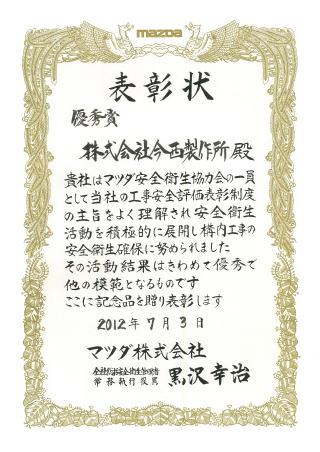 mazda
表彰状
優秀賞
株式会社今西製作所 殿
貴社はマツダ安全衛生協力会の一員
として当社の工事安全評価表彰制度
の主旨をよく理解され安全衛生
活動を積極的に展開し構内工事の
安全衛生確保に努められました
その活動結果はきわめて優秀で
他の模範となるものです
ここに記念品を贈り表彰します
2012年7月3日
マツダ株式会社
全社総括安全衛生管理者
常務執行役員 黒沢幸治